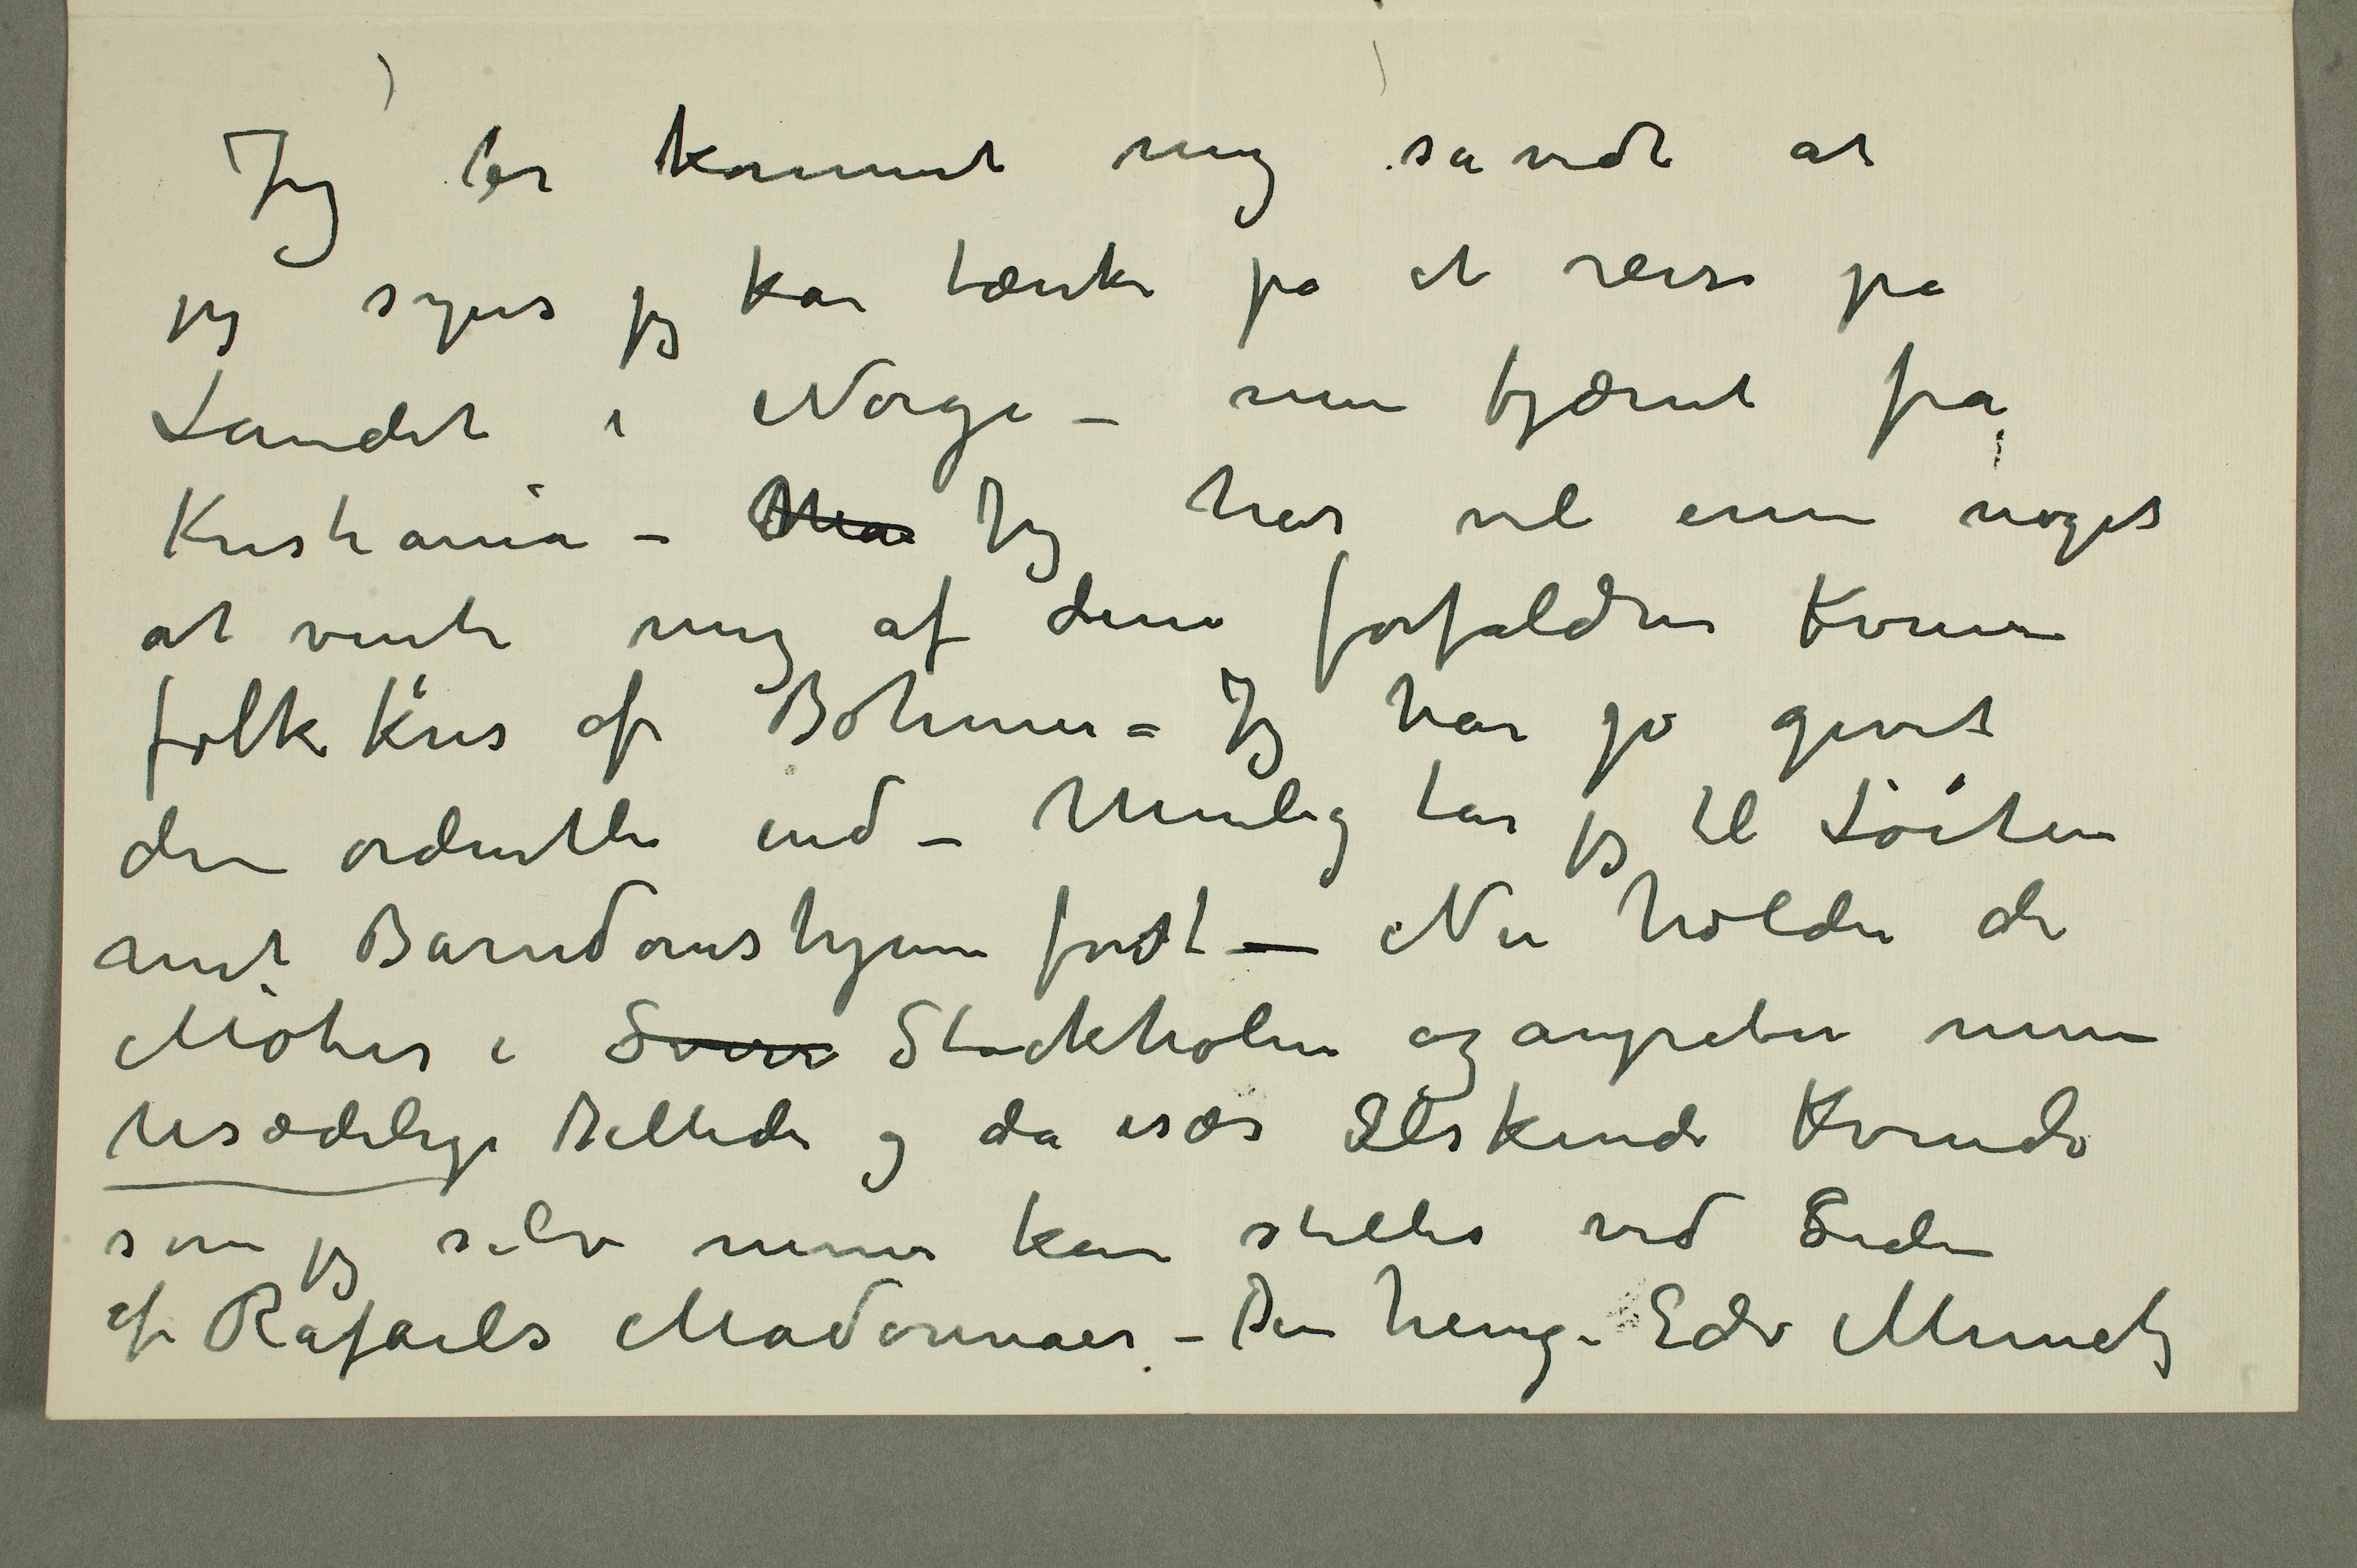 Jeg er kommet mig såvidt at
jeg synes jeg kan tænke på at reise på
Landet i Norge – men fjærnt fra
Kristiania – Man Jeg har vel ennu noget
at vente mig af denne forfaldne Kvinne
folk Kris af Bøhmer – Jeg har jo givet
den ordentlig ind – Mulig tar jeg til Løiten
mit Barndomshjem først – Nu holder de
Møter i Sver Stockholm og angriber mine
Usædelige Billeder og da især Elskende Kvinde
som jeg selv mener kan stilles ved Siden
af Rafaels Madonnaer – Din heng. Edv Munch